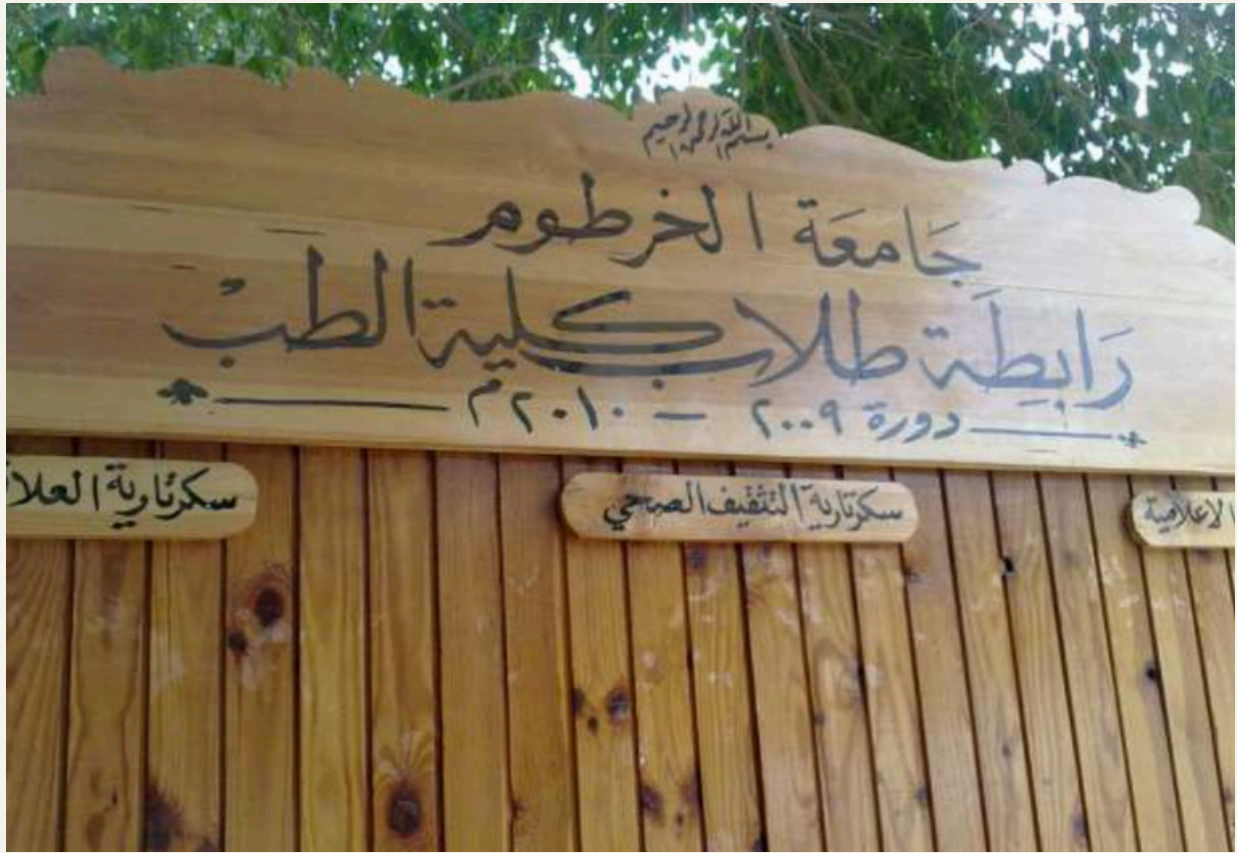 بسم الله الرحمن الرحيم
جَامعَة الخرطوم
رَابِطَة طلاب كلية الطبْ
دورة ٢٠٠٩ – ٢٠١٠م
الاعلامية
سكرتارية التثقيف الصحي
سكرتارية العلا